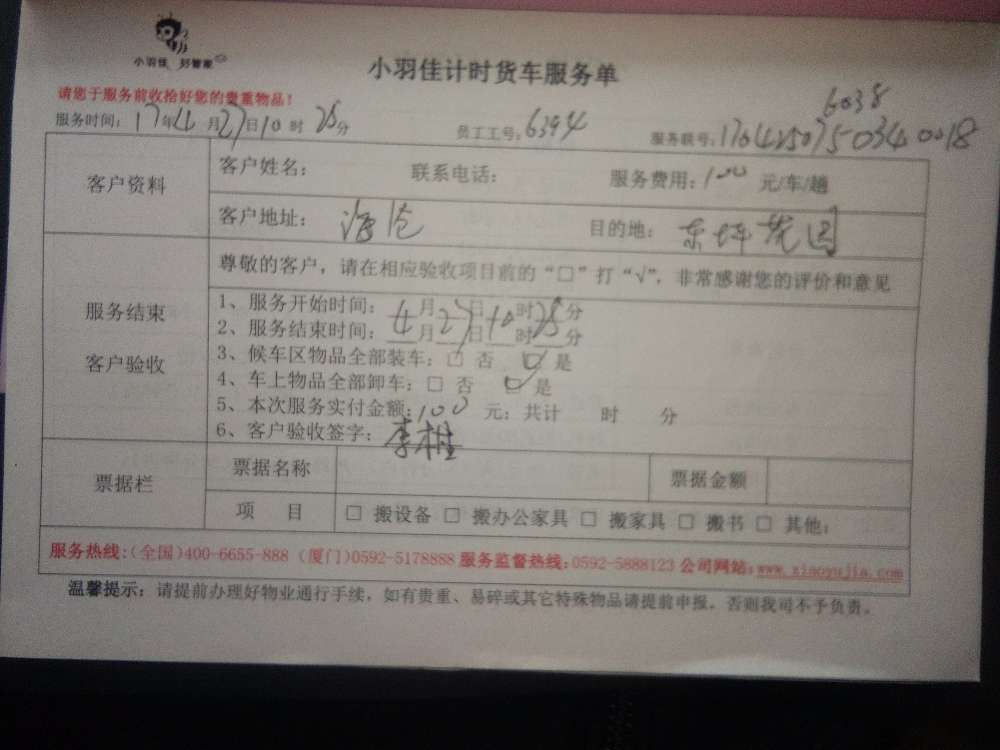 小羽佳 好管家
小羽佳计时货车服务单
请您于服务前收拾好您的贵重物品！
6038
服务时间：17年4月27日10时28分 员工工号：6394 服务联号：1704250750340018
客户资料
客户姓名： 联系电话： 服务费用：100元/车/趟
客户地址：海沧 目的地：东坪花园
服务结束
客户验收
尊敬的客户，请在相应验收项目前的“□”打“√”，非常感谢您的评价和意见
1、服务开始时间：4月27日10时28分
2、服务结束时间：月 日 时 分
3、候车区物品全部装车：□ 否 ☑ 是
4、车上物品全部卸车：□ 否 ☑ 是
5、本次服务实付金额：100 元；共计 时 分
6、客户验收签字：李桂
票据栏
票据名称 票据金额
项 目 □ 搬设备 □ 搬办公家具 □ 搬家具 □ 搬书 □ 其他：
服务热线：(全国)400-6655-888 (厦门)0592-5178888 服务监督热线：0592-5888123 公司网站：www.xiaoyujia.com
温馨提示：请提前办理好物业通行手续，如有贵重、易碎或其它特殊物品请提前申报，否则我司不予负责。